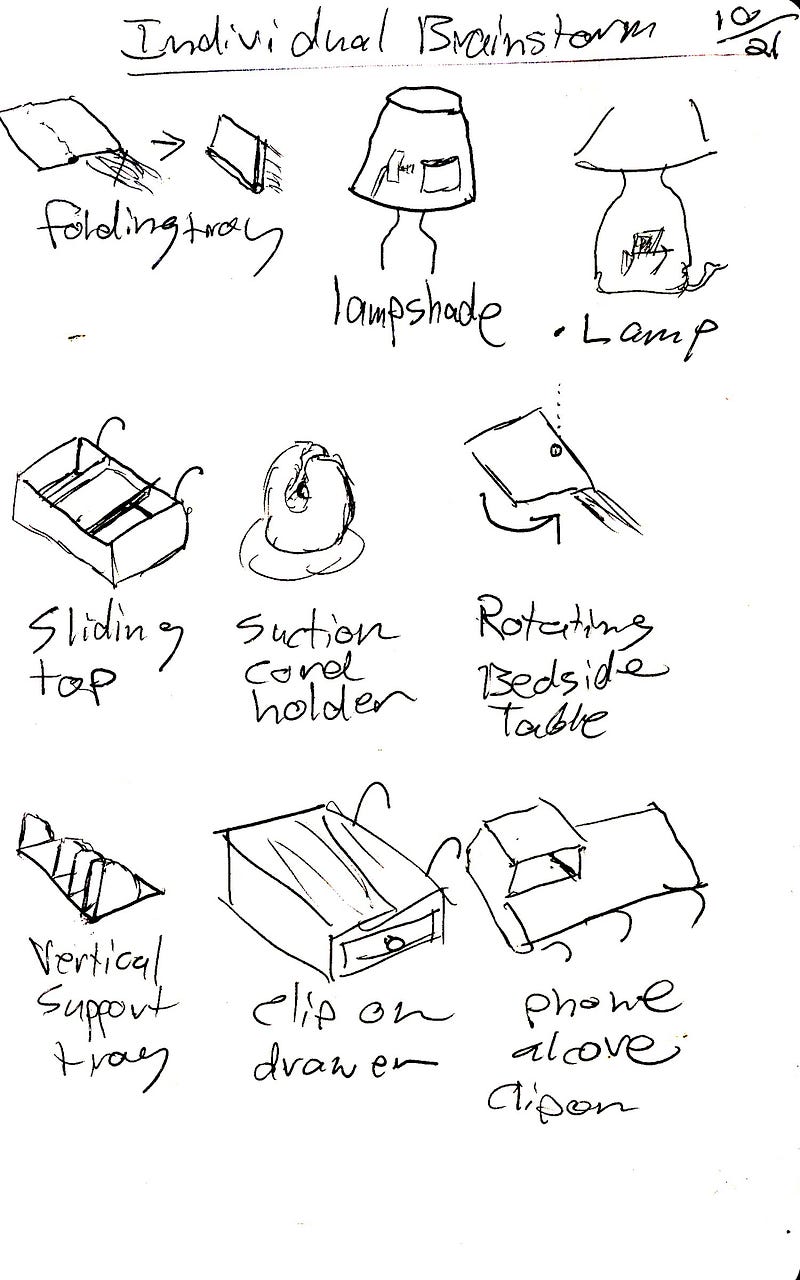 Individual Brainstorm 10/21
folding tray
lampshade
• Lamp
Sliding
top
Suction
cord
holder
Rotating
Bedside
Table
Vertical
Support
tray
clip on
drawer
phone
alcove
Clip on